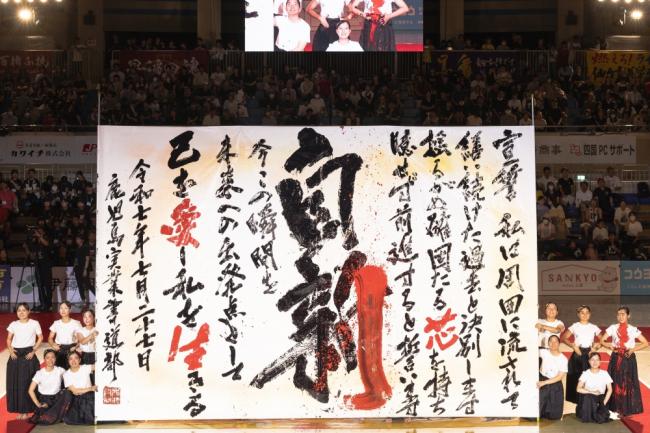 宣誓 私は周囲に流されて
繕い続けた過去と決別します
揺るがぬ確固たる芯を持ち
臆せず前進すると誓います
自新
今この瞬間を
未来への出発点として
己を愛し私を生きる
令和七年七月二十七日
鹿児島実業書道部
カワイチ株式会社
商事
四国PCサポート
SANKYO